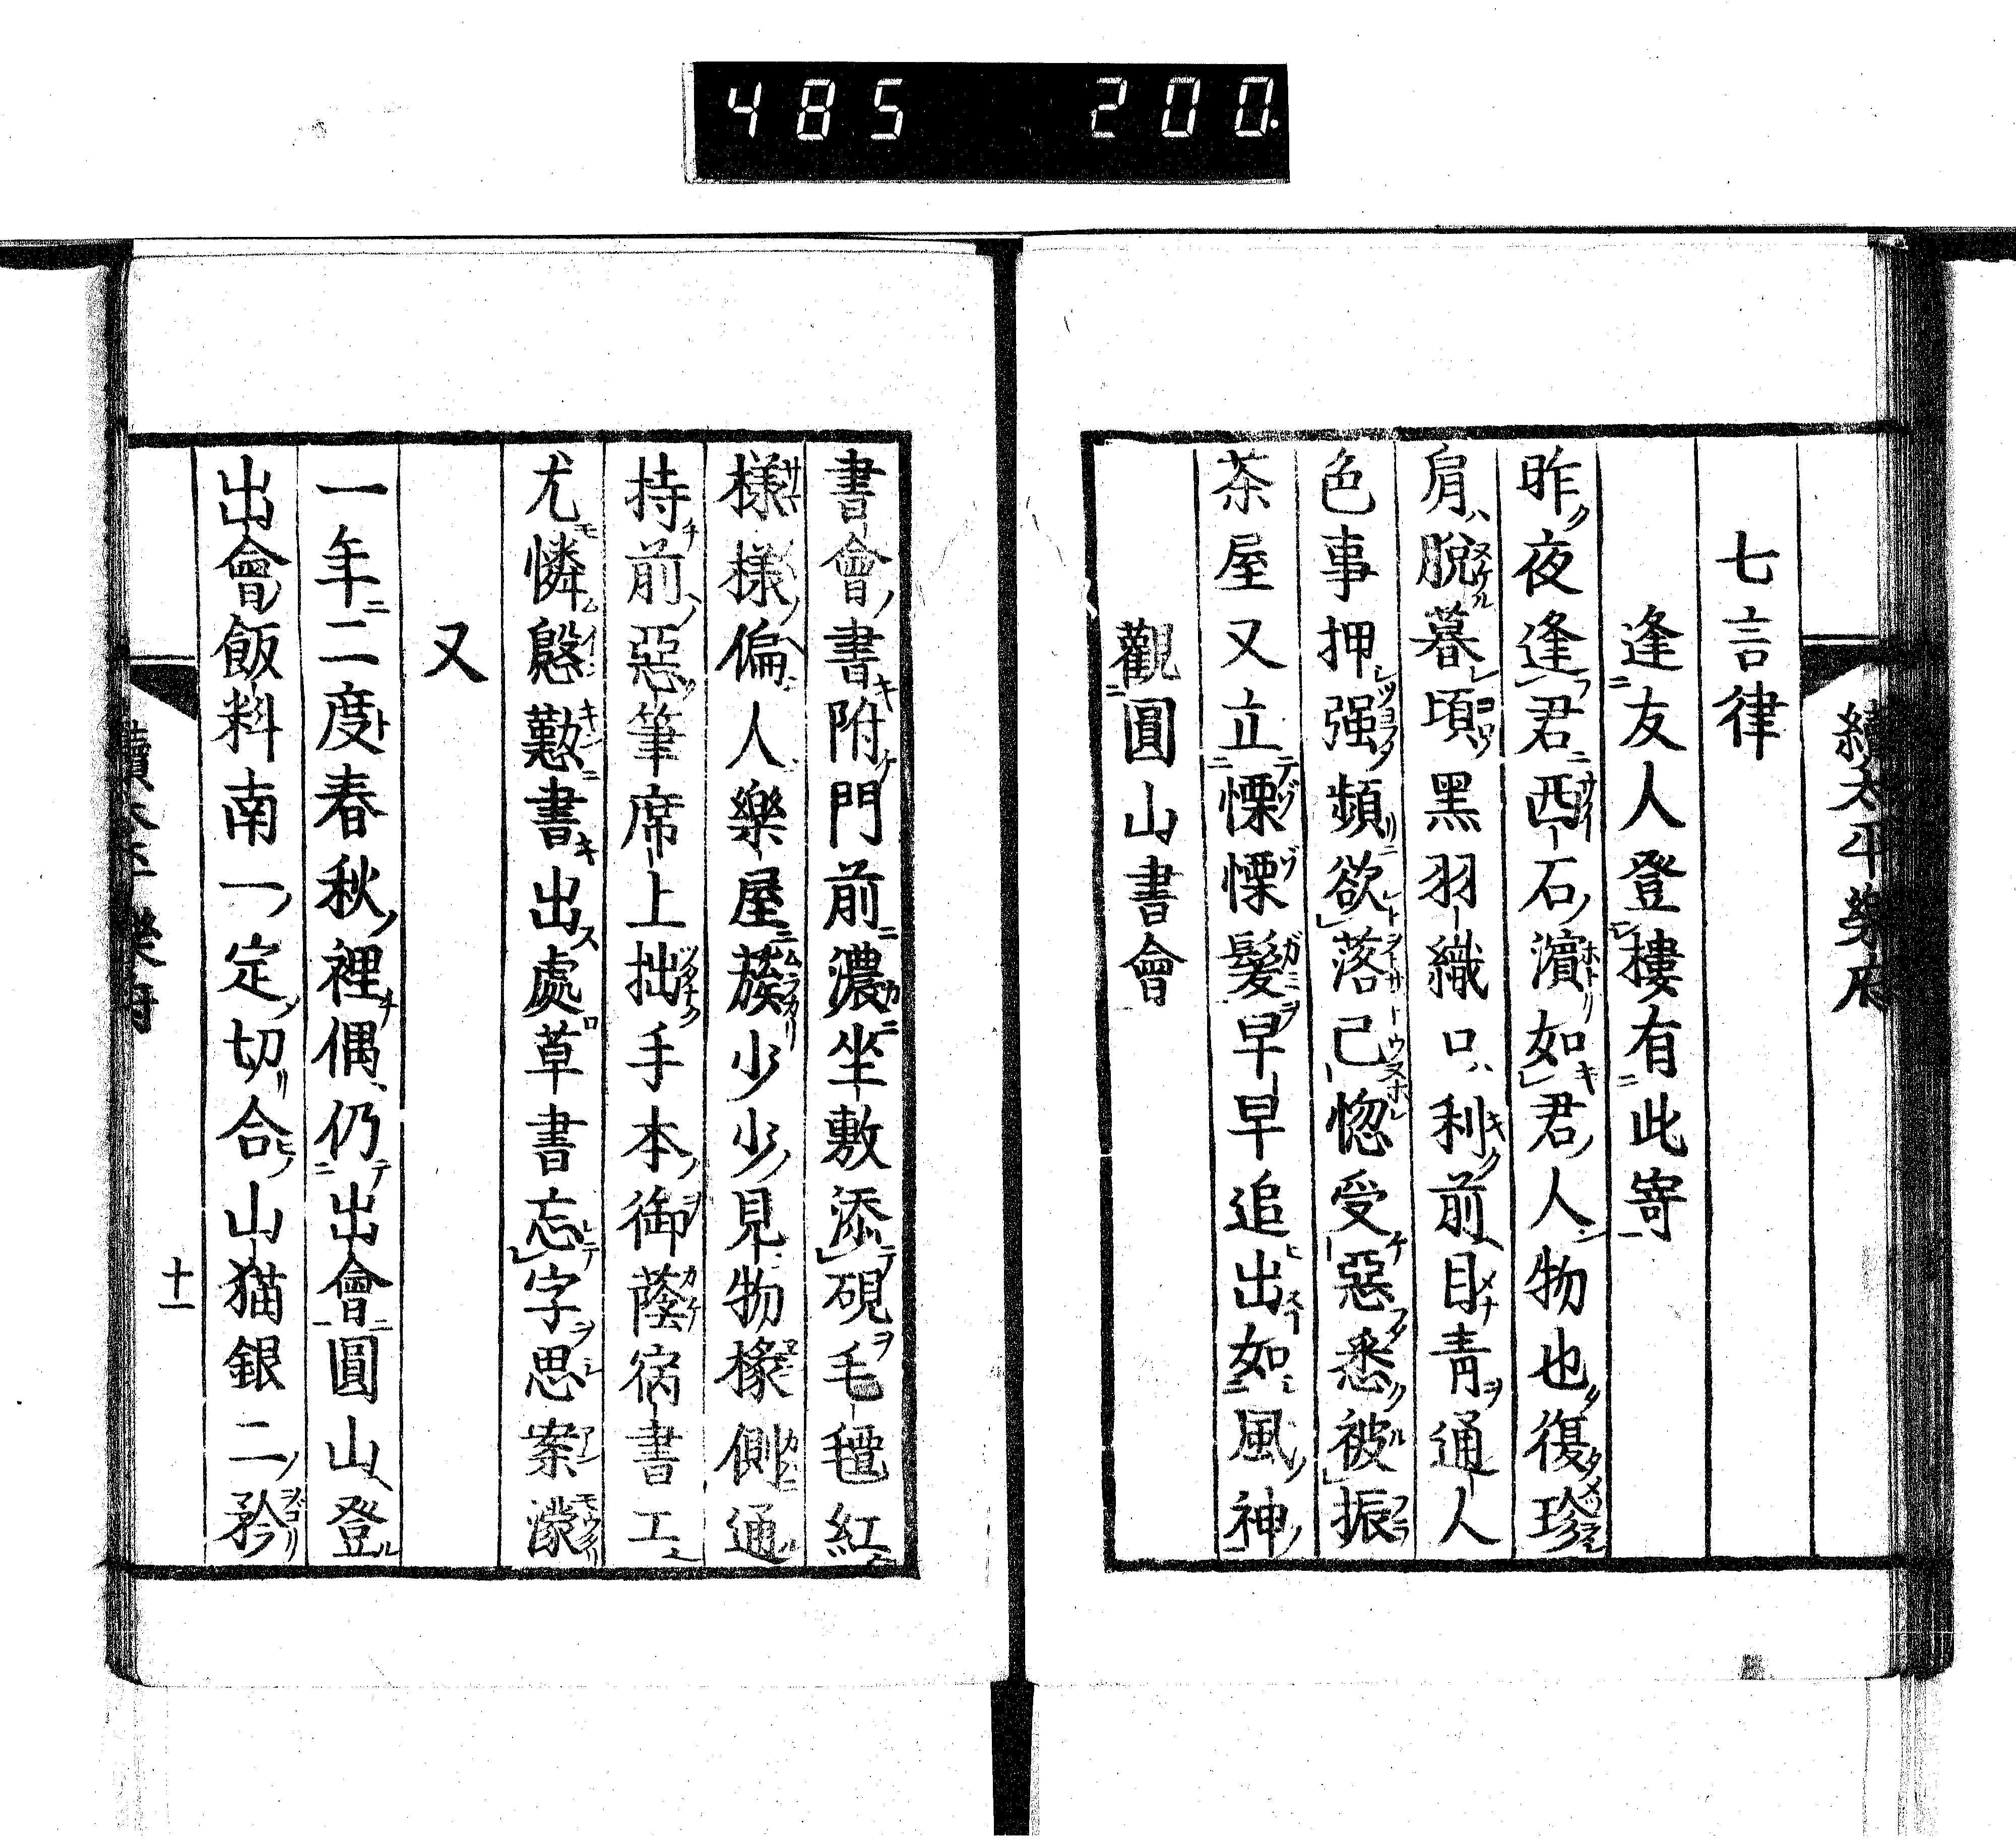 485 200.
續太平樂府
七言律
逢友人登樓有此寄
昨夜逢君西石濱如君人物也復珍
肩脫暮頃黑羽織口利前目青通人
色事押强頻欲落己惚受惡悉被振
茶屋又立慄慄髮早早追出如風神
觀圓山書會
書會書附門前濃坐敷添硯毛氈紅
樣樣偏人樂屋蔟少少見物椽側通
持前惡筆席上拙手本御蔭病書工
尤憐慇懃書出處草書忘字思案濛
又
一年二度春秋裡偶仍出會圓山登
出會飯料南一定切合山猫銀二矜
十一